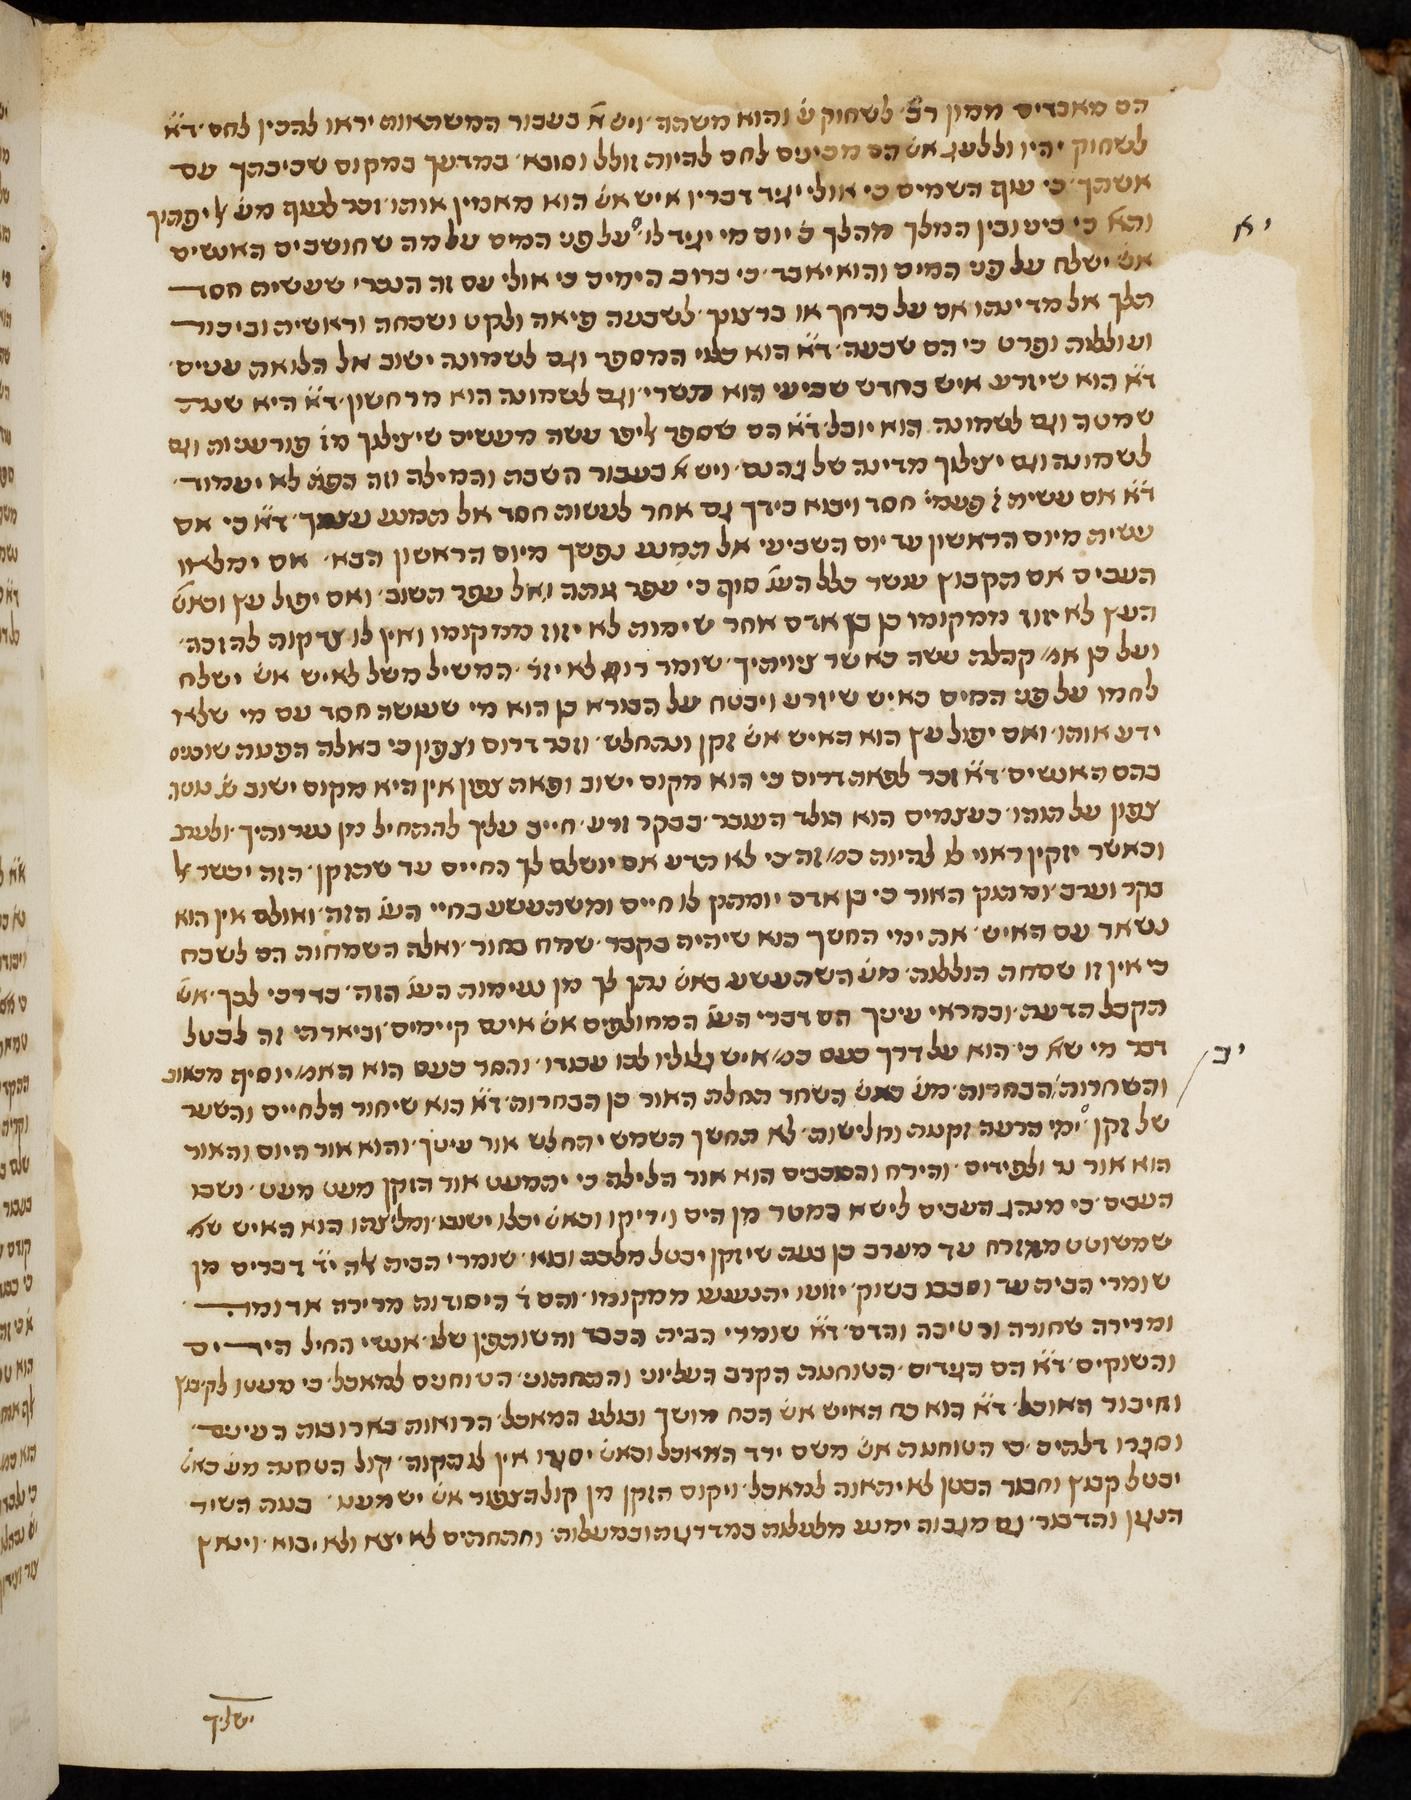 הם מאבדים ממון רב׳ לשחוק ש׳ והוא משתה׳ ויש א׳ בעבור המשתאות יראו להכין לחם׳ ד״א
לשחוק יהיו וללעג אש׳ הם מכינים לחם להיות זולל וסובא׳ במדעך במקום שכיבתך עם
אשתך׳ כי עוף השמים כי אולי יגיד דבריו איש אש׳ הוא מאמין אותו׳ וכו׳ לעוף מש׳
יא
כי בינו ובין המלך מהלך יום מי יגיד לו׳ על פני המים על מה שחושבים האנשים
אש׳ ישלח על פני המים והוא יאבד׳ כי ברוב הימים כי אולי עם זה הנכרי שעשית חסד
תלך אל מדינתו אם על כרחך או ברצונך׳ לשבעה פיאה ולקט ושכחה וראשית וביכור
ועוללות ופרט כי הם שבעה׳ ד״א הוא כלפי המספר וגם לשמונה ישוב אל הלואת עניים׳
ד״א הוא שיזרע איש בחדש שביעי הוא תשרי׳ וגם לשמונה הוא מרחשון׳ ד״א היא שנת
שמטה וגם לשמונה הוא יובל׳ ד״א הם שספר עשה מעשים שיצילך פורעניות וגם
לשמונה וגם יצילך מדינה של גהנם׳ ויש א׳ בעבור השבת והמילה וזה בפה לא יעמוד׳
ד״א אם עשית ז׳ פעמי׳ חסד ויבוא בידך גם אחר לעשות חסד אל תמנע עצמך׳ ד״א כי אם
עשית מיום הראשון עד יום השביעי אל תמנע נפשך מיום הראשון הבא׳ אם ימלאו
העבים אם תקבוץ עושר כלל סוף כי עפר אתה ואל עפר תשוב׳ ואם יפול עץ וכאש׳
העץ לא יזוז ממקומו כן בן אדם אחר שימות לא יזוז ממקומו ואין לו צדקות להזכה׳
ועל כן קהלת עשה כאשר ציויתיך׳ שומר רוח לא יזר׳ המשיל משל לאיש אש׳ ישלח
לחמו על פני המים כאיש שיזרע ויבטח על הבורא כן הוא מי שעושה חסד עם מי שלא
ידע אותו׳ ואם יפול עץ הוא האיש אש׳ זקן ונחלש׳ וזכר דרום וצפון כי באלה הפעת שוכנים
בהם האנשים׳ ד״א זכר לפאת דרום כי הוא מקום ישוב ופאת צפון אין היא מקום ישוב ש׳ נוטה
צפון על תוהו׳ כעצמים הוא הולד העובר׳ בבקר זרע׳ חייב עליך להתחיל מן נערותיך׳ ולערב
וכאשר יזקין ראוי לו להיות זה׳ כי לא תדע אם ינשלם לך החיים עד שתזקן׳ הזה יכשר
בקר וערב׳ ומתוק האור כי בן אדם יומתק לו חיים ומשתעשע בחיי הזה׳ ואולם אין הוא
נשאר עם האיש׳ את ימי החשך הוא שיהיה בקבר׳ שמח בחור׳ ואלה השמחות הם לשבח
כי אין זו שמחה הוללות׳ מש׳ השתעשע כאש׳ נתן לך מן נעימות הזה׳ בדרכי לבך׳ אש׳
תקבל הדעת׳ ובמראי עיניך הם דברי המחולפים אש׳ אינם קיימים׳ וביארתי זה לבטל
דבר מי שא׳ כי הוא על דרך כעס איש גלוליו לכו עבודו׳ והסר כעס הוא יוסיף מכאוב
יב
והשחרות׳ הבחרות׳ מש׳ כאש׳ השחר תחלת האור כן הבחרות׳ ד״א הוא שיחור הלחיים והשער
של זקן׳ ימי הרעה זקנה וחלישות׳ לא תחשך השמש יחלש אור עיניך׳ והוא אור היום והאור
הוא אור נר ולפידים׳ והירח והכוכבים הוא אור הלילה כי יתמעט אור הזקן מעט מעט׳ ושבו
העבים׳ כי מנהג העבים לישא במטר מן הים וידיקו וכאש׳ יכלו ישובו הוא האיש
שמשוטט ממזרח עד מערב כן בעת שיזקן יבטל מלכת ובוא׳ שומרי הבית דברים מן
שומרי הבית עד וסבבו בשוק׳ יזועו יתנענע ממקומו׳ והם ד׳ היסודות מרירה אדומה
ומרירה שחורה ורטיבה והדם׳ ד״א שומרי הבית הכבד והשותפין שלו׳ אנשי החיל הידים
והשוקים׳ ד״א הם הגידים׳ הטוחנות הקרב העליוני והתחתוני׳ הטוחנים למאכל׳ כי מעטו לקבוץ
וחיבור האוכל׳ ד״א הוא כח האיש אש׳ הכח מושך ובולע המאכל׳ הרואות בארובות העינים׳
וסגרו דלתים׳ הטוחנות אש׳ משם ירד המאכל וכאש׳ יסגרו אין לו תקוה׳ קול הטחנה מש׳ כאש׳
יבטל קבוץ וחבור הבטן לא יתאוה למאכל׳ ויקום הזקן מן קול הצפור אש׳ ישמענו׳ בנות השיר
הגרון והדבור׳ גם מגבוה ימנע מלעלות במדרגות ובמעלות׳ וחתחתים לא יצא ולא יבוא׳ וינאץ
ישליך